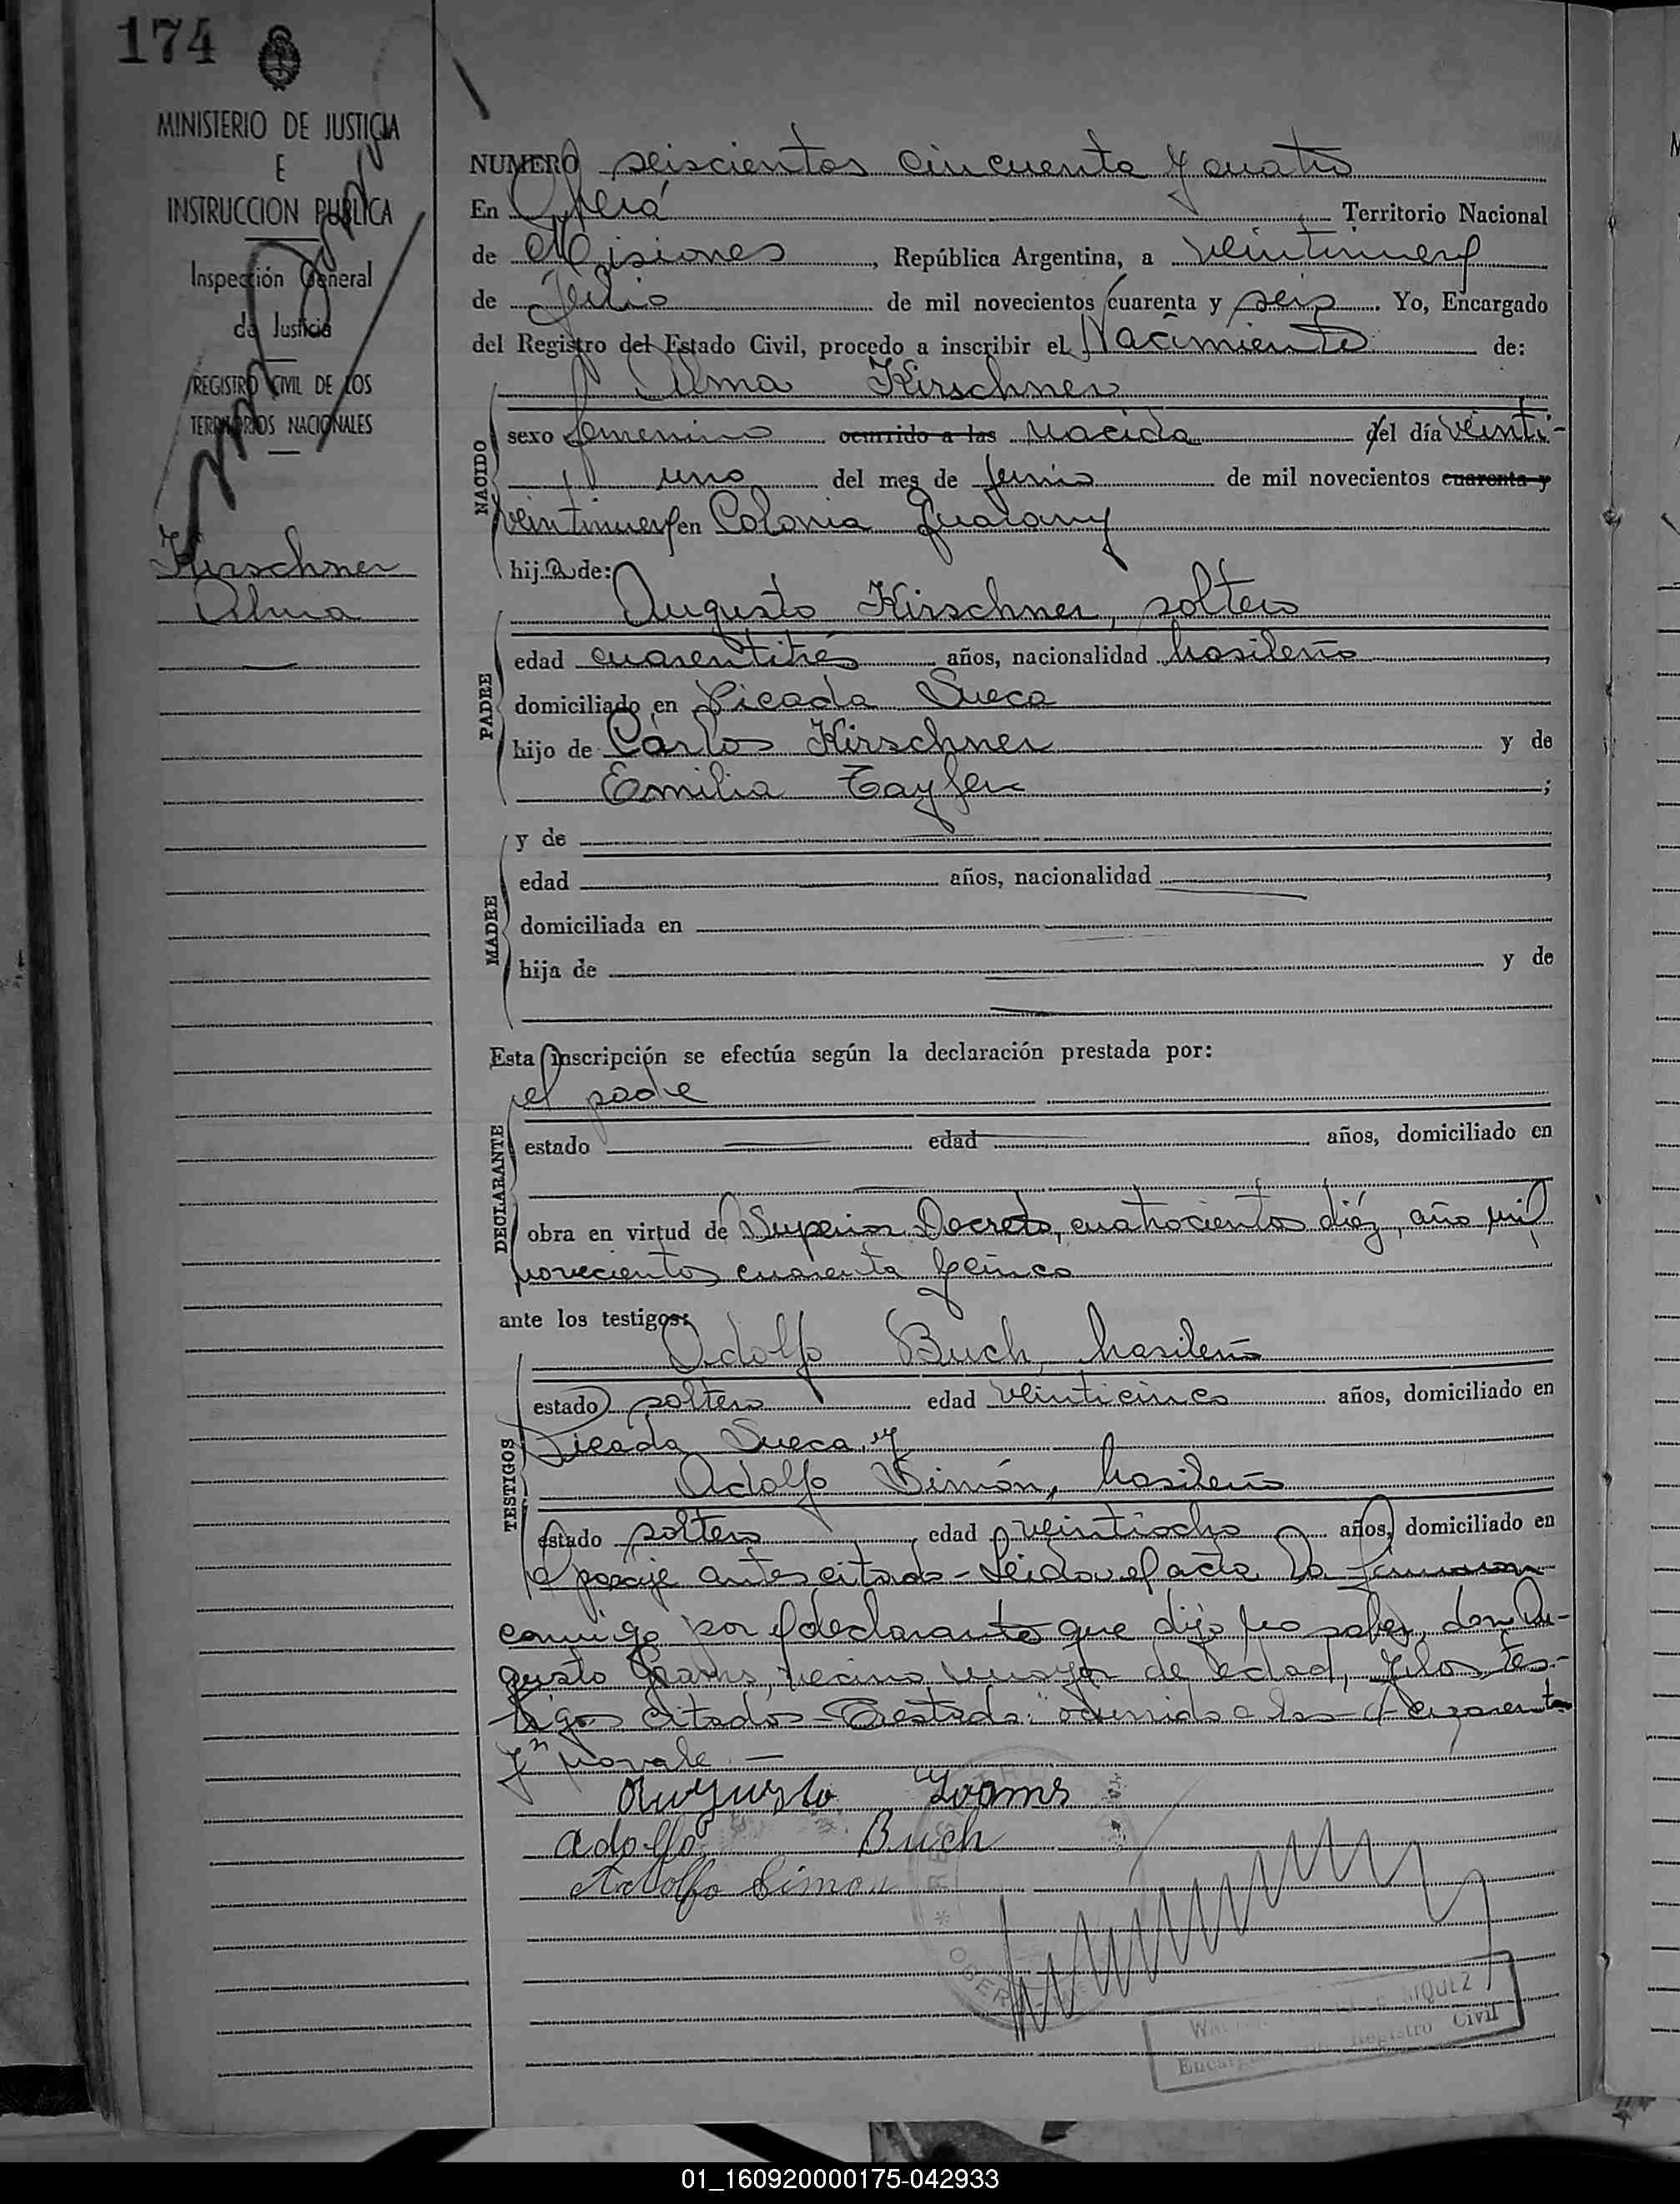 174
MINISTERIO DE JUSTICIA
E
INSTRUCCION PUBLICA
Inspección General
de Justicia
REGISTRO CIVIL DE LOS
TERRITORIOS NACIONALES
Kirschner
Alma
NUMERO seiscientos cincuenta y cuatro
En Oberá Territorio Nacional
de Misiones, República Argentina, a veintinueve
de Julio de mil novecientos cuarenta y seis. Yo, Encargado
del Registro del Estado Civil, procedo a inscribir el Nacimiento de:
Alma Kirschner
NACIDO
sexo femenino ocurrido a las nacida el día veinti-
uno del mes de Junio de mil novecientos cuarenta y
veintinueve en Colonia Guarany
hija de:
PADRE
Augusto Kirschner, soltero
edad cuarentitrés años, nacionalidad brasileño,
domiciliado en Picada Sueca
hijo de Carlos Kirschner y de
Emilia Tayfer;
MADRE
y de
edad años, nacionalidad,
domiciliada en
hija de y de
Esta inscripción se efectúa según la declaración prestada por:
DECLARANTE
el padre
estado edad años, domiciliado en
obra en virtud de Superior Decreto, cuatrocientos diéz, año mil
novecientos cuarenta y cinco
ante los testigos:
TESTIGOS
Adolfo Buch, brasileño
estado soltero edad veinticinco años, domiciliado en
Picada Sueca y
Adolfo Simón, brasileño
estado soltero, edad veintiocho años, domiciliado en
el paraje antes citado - Leida el acta la firmaron
conmigo por el declarante que dijo no saber, don Au-
gusto vecino mayor de edad, y los tes-
tigos citados - Testado: ocurrido a las - d - cuarenta
y" no vale. -
Augusto
Adolfo Buch
Adolfo Simon
Registro Civil
01_160920000175-042933